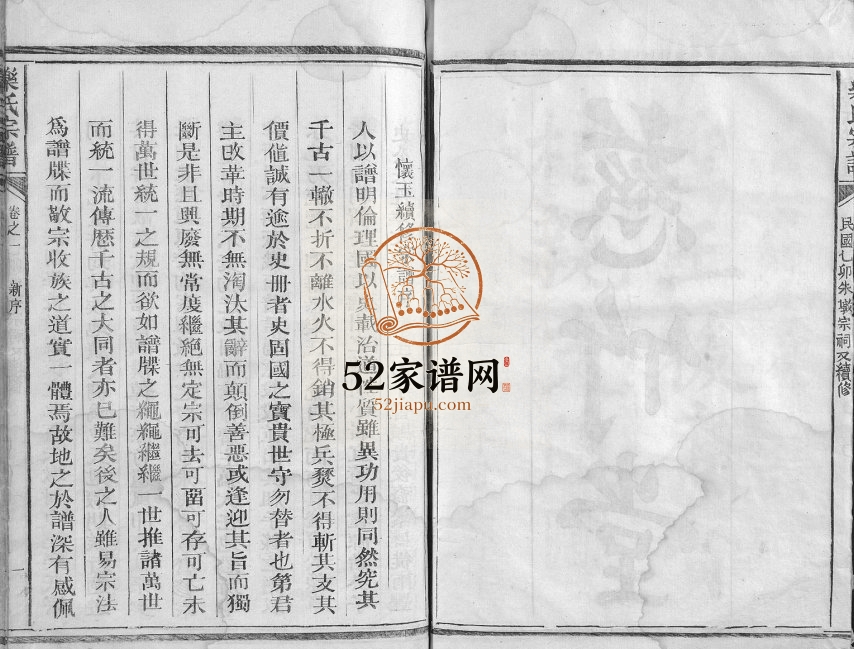 氏宗譜
民國乙卯朱戩宗祠又續修
懷玉續修
人以譜明倫理國以史載治道性質雖異功用則同然究其
千古一轍不折不離水火不得銷其極兵燹不得斬其支其
價值誠有逾於史冊者史固國之寶貴世守勿替者也第君
主改革時期不無淘汰其辭而顛倒善惡或逢迎其旨而獨
斷是非且興廢無常度繼絕無定宗可去可畱可存可亡未
得萬世統一之規而欲如譜牒之繩繩繼繼一世推諸萬世
而統一流傳歷千古之大同者亦已難矣後之人雖易宗法
爲譜牒而敬宗收族之道實一體焉故地之於譜深有感佩
樂氏宗譜
卷之一
新序
52家谱网
52jiapu.com